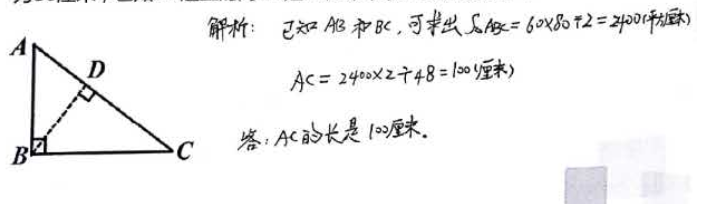 解析：已知 AB 和 BC，可求出 S△ABC = 60×80÷2 = 2400(平方厘米)
A
D
AC = 2400×2÷48 = 100(厘米)
B
C
答：AC的长是 100厘米。